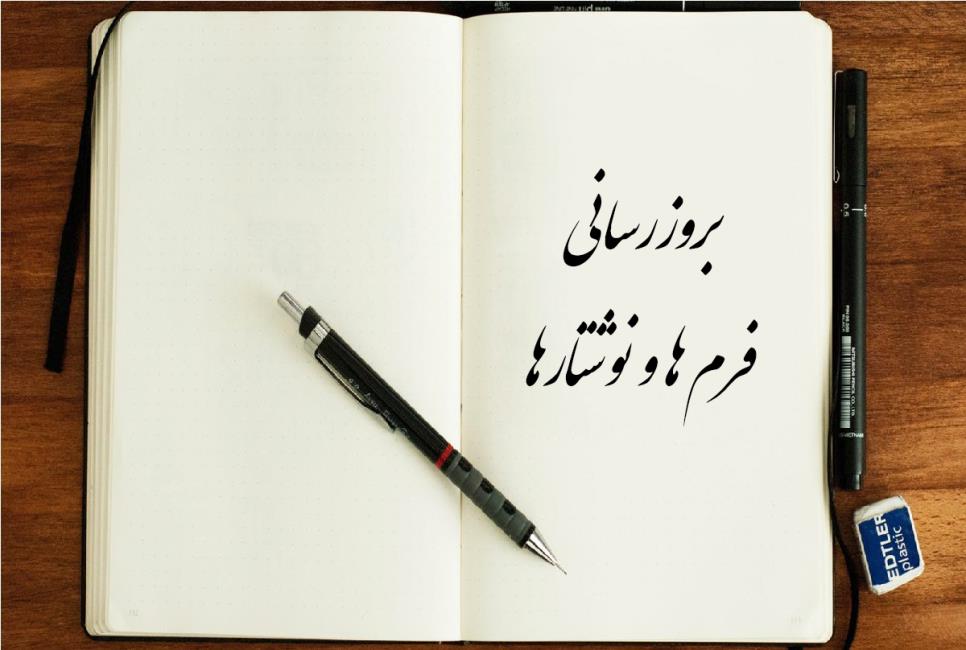 بروزرسانی
فرم ها و نوشتارها
EDTLER
plastic
0.5